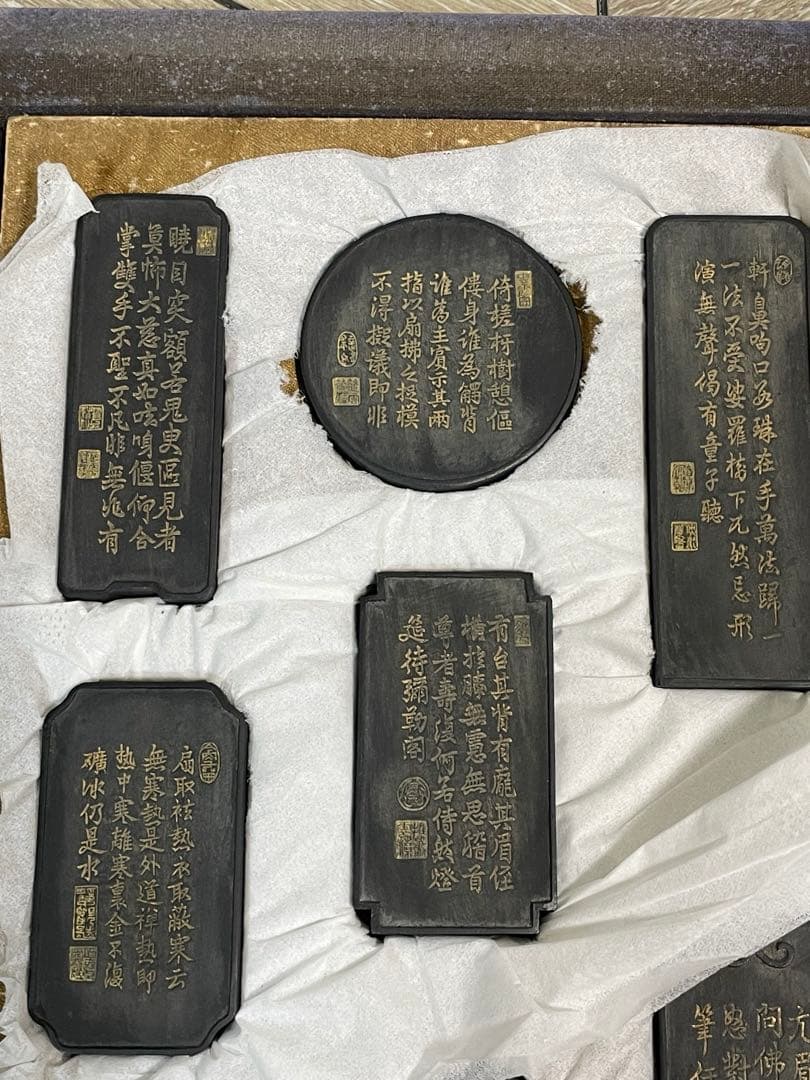 曉目突額若鬼臾區見者
莫怖大慈真如呿呻偃仰合
掌雙手不聖不凡非無非有
倚槎枒樹憩傴
僂身誰為觸背
誰為主賓示其兩
指以扇拂之捉模
不得擬議即非
軒鼻呴口念珠在手萬法歸一
一法不受娑羅樹下兀然忘形
演無聲偈有童子聽
扇取祛熱衣取蔽寒云
無寒熱是外道禪熱即
熱中寒離寒裏金不復
礦冰仍是水
有台其背有龐其眉
橫膝無慮無思稽首
尊者壽復何若侍然燈
待彌勒閣
問佛
對
筆